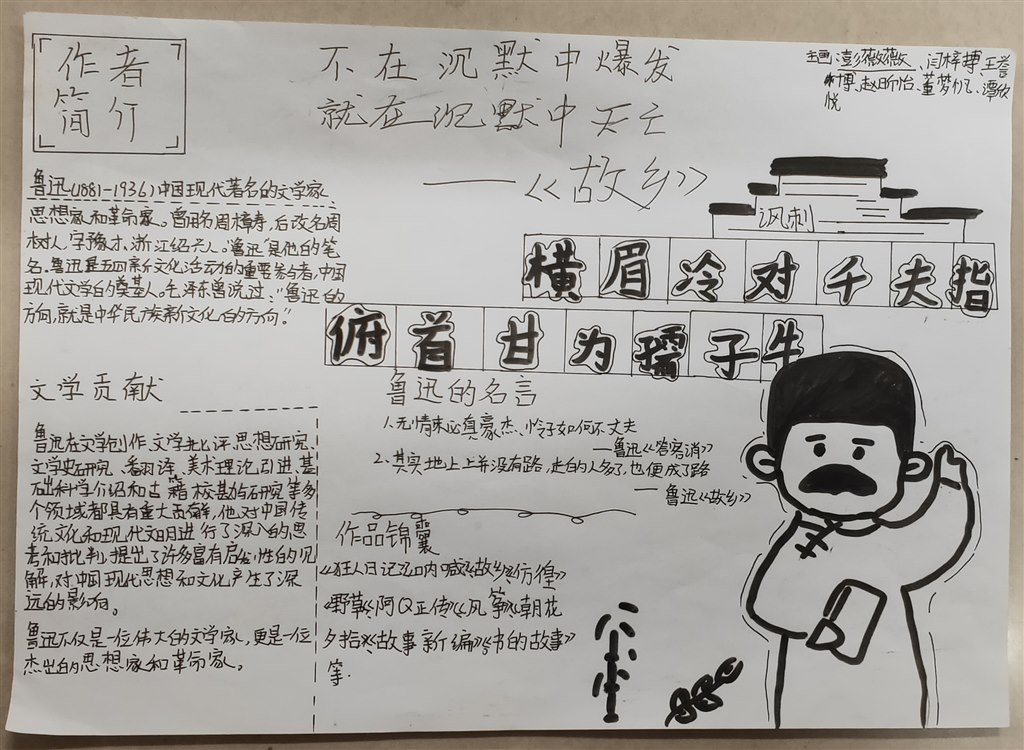 作者
简介
不在沉默中爆发
就在沉默中灭亡
——《故乡》
主画:彭薇薇、闫梓搏、王誉
博、赵昕怡、董梦、谭欣
悦
鲁迅(1881-1936)中国现代著名的文学家
思想家和革命家。曾用名周樟寿,后改名周
树人,字豫才,浙江绍兴人。鲁迅是他的笔
名。鲁迅是五四新文化活动的重要参与者,中国
现代文学的奠基人。毛泽东曾说过:“鲁迅的
方向,就是中华民族新文化的方向。”
讽刺
横眉冷对千夫指
俯首甘为孺子牛
文学贡献
鲁迅在文学创作、文学批评、思想研究、
文学史研究、翻译、美术理论引进、基
础科学介绍和古籍校勘与研究等多
个领域都具有重大贡献,他对中国传
统文化和现代文明进行了深入的思
考和批判,提出了许多富有启发性的见
解,对中国现代思想和文化产生了深
远的影响。
鲁迅不仅是一位伟大的文学家,更是一位
杰出的思想家和革命家。
鲁迅的名言
1、无情未必真豪杰、怜子如何不丈夫
——鲁迅《答客诮》
2、其实地上上并没有路,走的人多了,也便成了路
——鲁迅《故乡》
作品锦囊
《狂人日记》《呐喊》《故乡》《彷徨》
《野草》《阿Q正传》《风筝》《朝花
夕拾》《故事新编》《书的故事》
等.